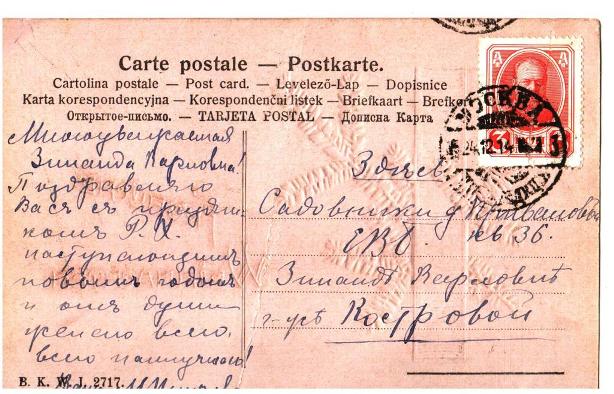 Carte postale — Postkarte.
Cartolina postale — Post card. — Levelező-Lap — Dopisnice
Karta korespondencyjna — Korespondenční listek — Briefkaart — Brefkor
Открытое-письмо. — TARJETA POSTAL — Дописна Карта
Многоуважаемая
Зинаида Карловна!
Поздравляю
Васъ съ праздни
комъ Р. Х.
наступающимъ
новымъ годомъ
и отъ души
желаю всего,
всего наилучшаго!
B. K. W. J. 2717.
МОСКВА
24.12.14
3
Здѣсь
Садовники д.
кв 36.
Зинаидѣ Карловнѣ
г-жѣ Костровой